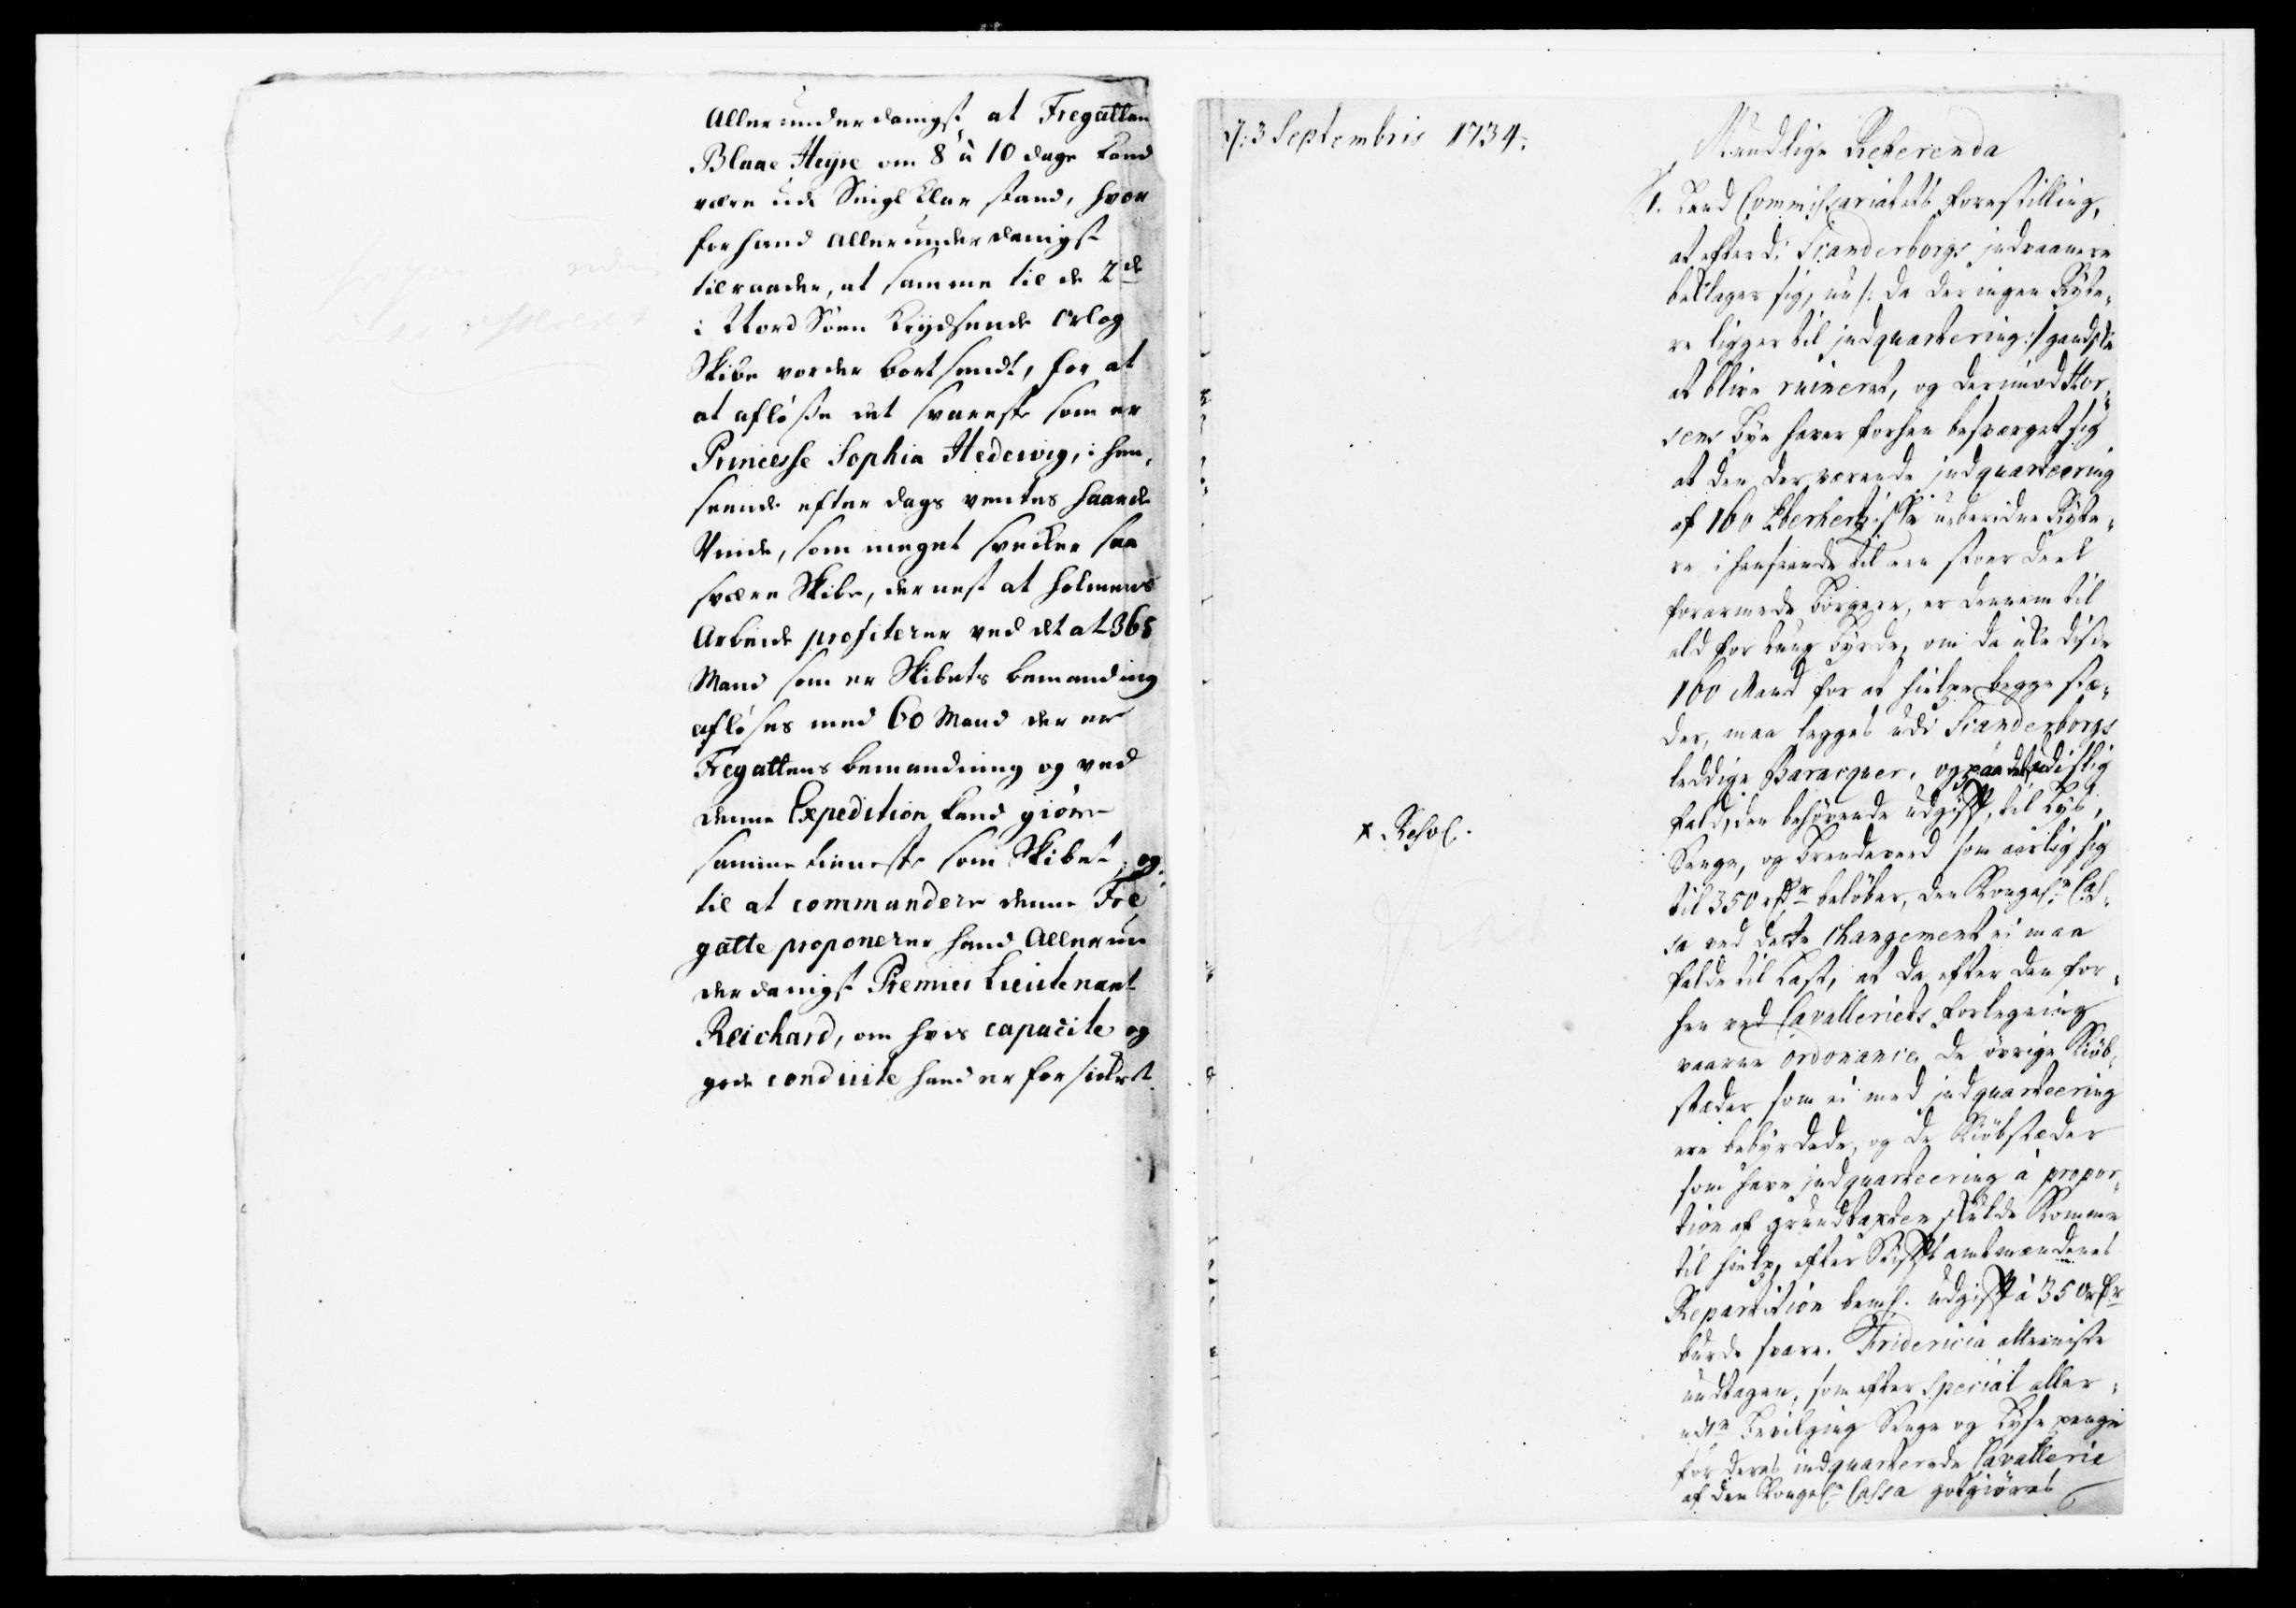 Allerunderdanigst at Fregatten
Blaae Heyre om 8 à 10 dage kand
være udi Seigl klar stand, hvor
for hand allerunderdanigst
tilraader, at samme til de 2de
i Nord Söen krydsende Orlog
Skibe vorder bortsendt, for at
at aflöße det svareste som er
Princesse Sophia Hedewig, i hen¬
seende efter dags ventes haarde
Vinde, som meget svecker saa
svære Skibe, dernest at holmens
Arbeide profiterer ved det at 365
Mand som er Skibets bemanding
aflöses med 60 Mand der er
Fregattens bemandning og ved
denne Expedition kand giöre
samme tieneste som Skibet, og
til at commandere denne Fre
gatte proponerer hand Allerun
derdanigst Premier Lieutenant
Reichard, om hvis capacite og
gode conduite hand er forsickret
d: 3 Septembris 1734.
Mundlige Referenda
1. Land Commissariatets forestilling,
at efterdi Scanderborgs indvaanere
beklager sig, nu /: da der ingen Rytte¬
re ligger til indquartering :/ gandske
at blive ruineret, og derimod Hor¬
sens bye haver forhen besværget sig
at den der værende indquarteering
af 160 uberidne Rytte¬
re i henseende til een stoer deel
forarmede borgere, er dennem til
ald for tung byrde, om da icke disse
160 Mand for at hielpe begge stæ¬
der, maa legges udi Scanderborgs
leddige Baracquer, og paa det i
fald, den behövende udgifft, til Lys,
Senge, og brændeved som aarlig sig
til 350 rdr belöber, den Kongel: Cas¬
sa ved dette changement ei maa
falde til Last, at da efter den for¬
hen ved Cavalleriets forlegning
vaarne ordonance, de övrige Kiöb¬
stæder som ei med indquarteering
ere bebyrdede, og de Kiöbstæder
som have indquarteering à propor¬
tion af grundtaxten skulde komme
til hielp, efter Stifftamtmændenes
Repartition bem: udgifft à 350 rdr
burde svare. Fridericia alleeniste
undtagen, som efter Special aller¬
ndste Bevilging Senge og Lyse penge
for deres indquarterede Cavallerie
af den Kongel: Cassa godtgiöres
x Resol.